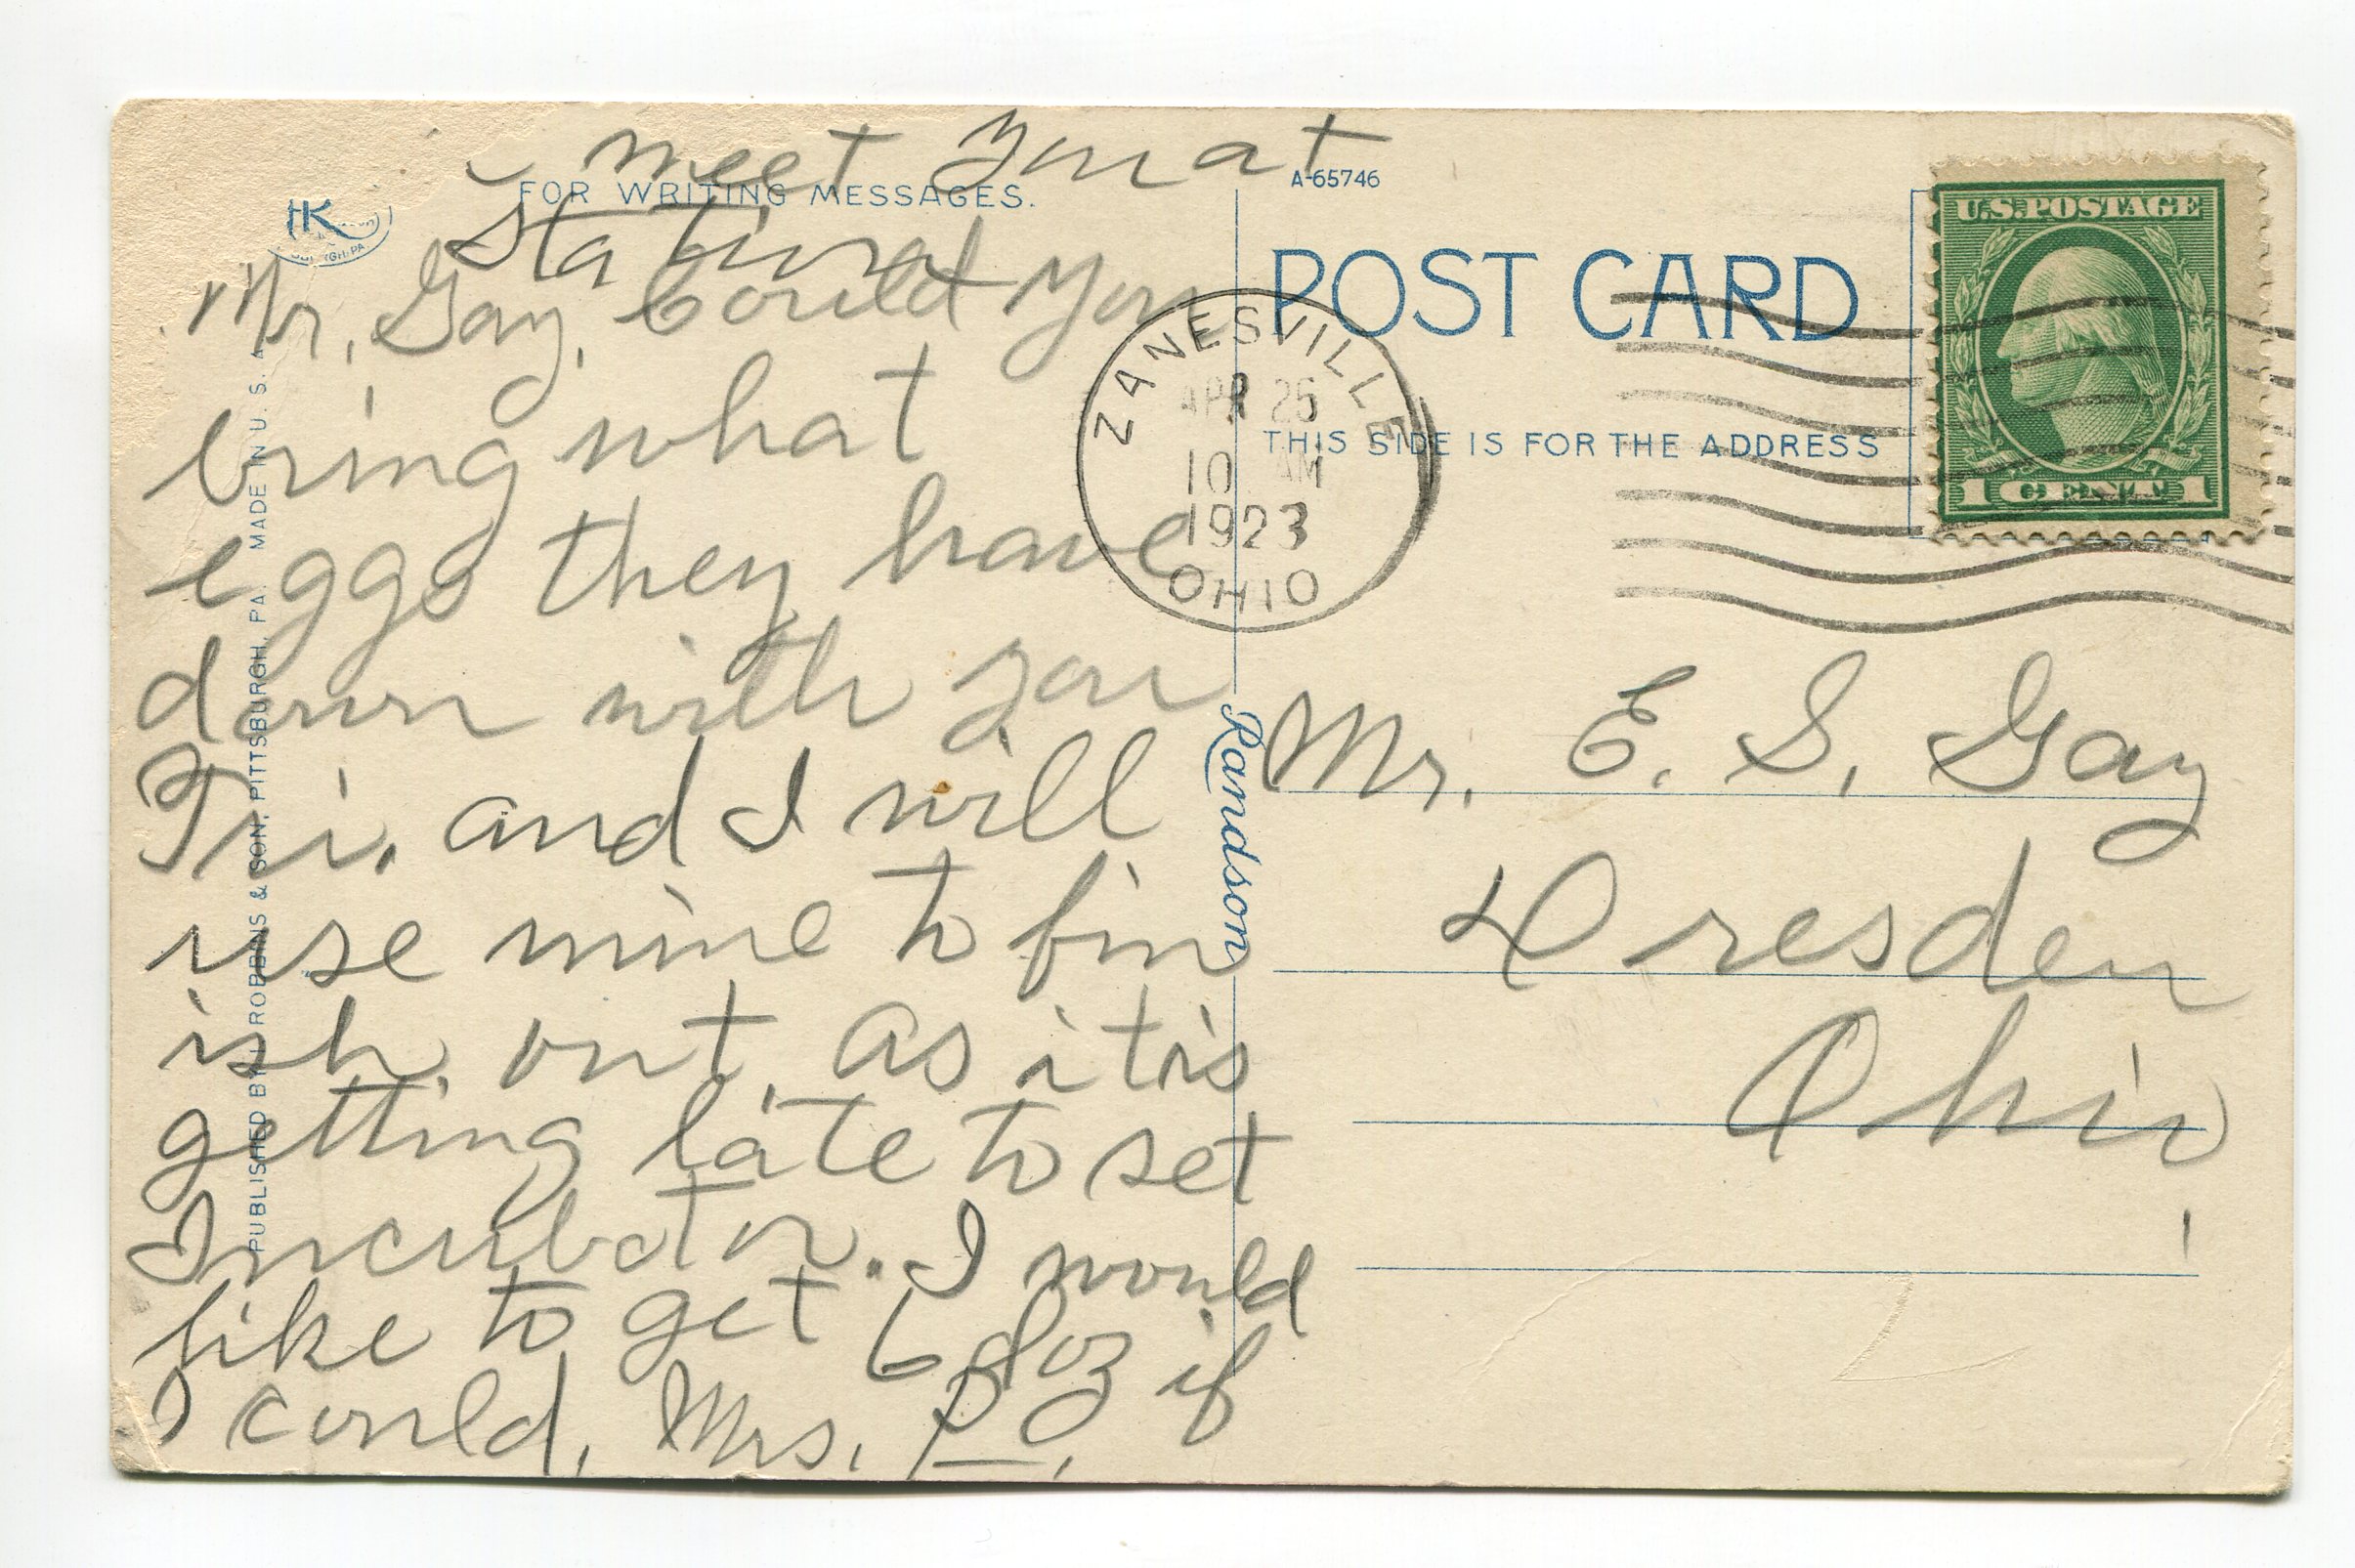 meet you at
Station
FOR WRITING MESSAGES.
Mr. Gay, Could you
bring what
eggs they have
down with you
Fri. and I will
use mine to fin
ish out, as it is
getting late to set
Incubator. I would
like to get 6 doz if
I could, Mrs. B.
PUBLISHED BY I. ROBBINS & SON, PITTSBURGH, PA. MADE IN U. S. A.
Randson
A-65746
POST CARD
THIS SIDE IS FOR THE ADDRESS
ZANESVILLE
APR 25
10 AM
1923
OHIO
U.S. POSTAGE
1 CENT 1
Mr. E. S. Gay
Dresden
Ohio